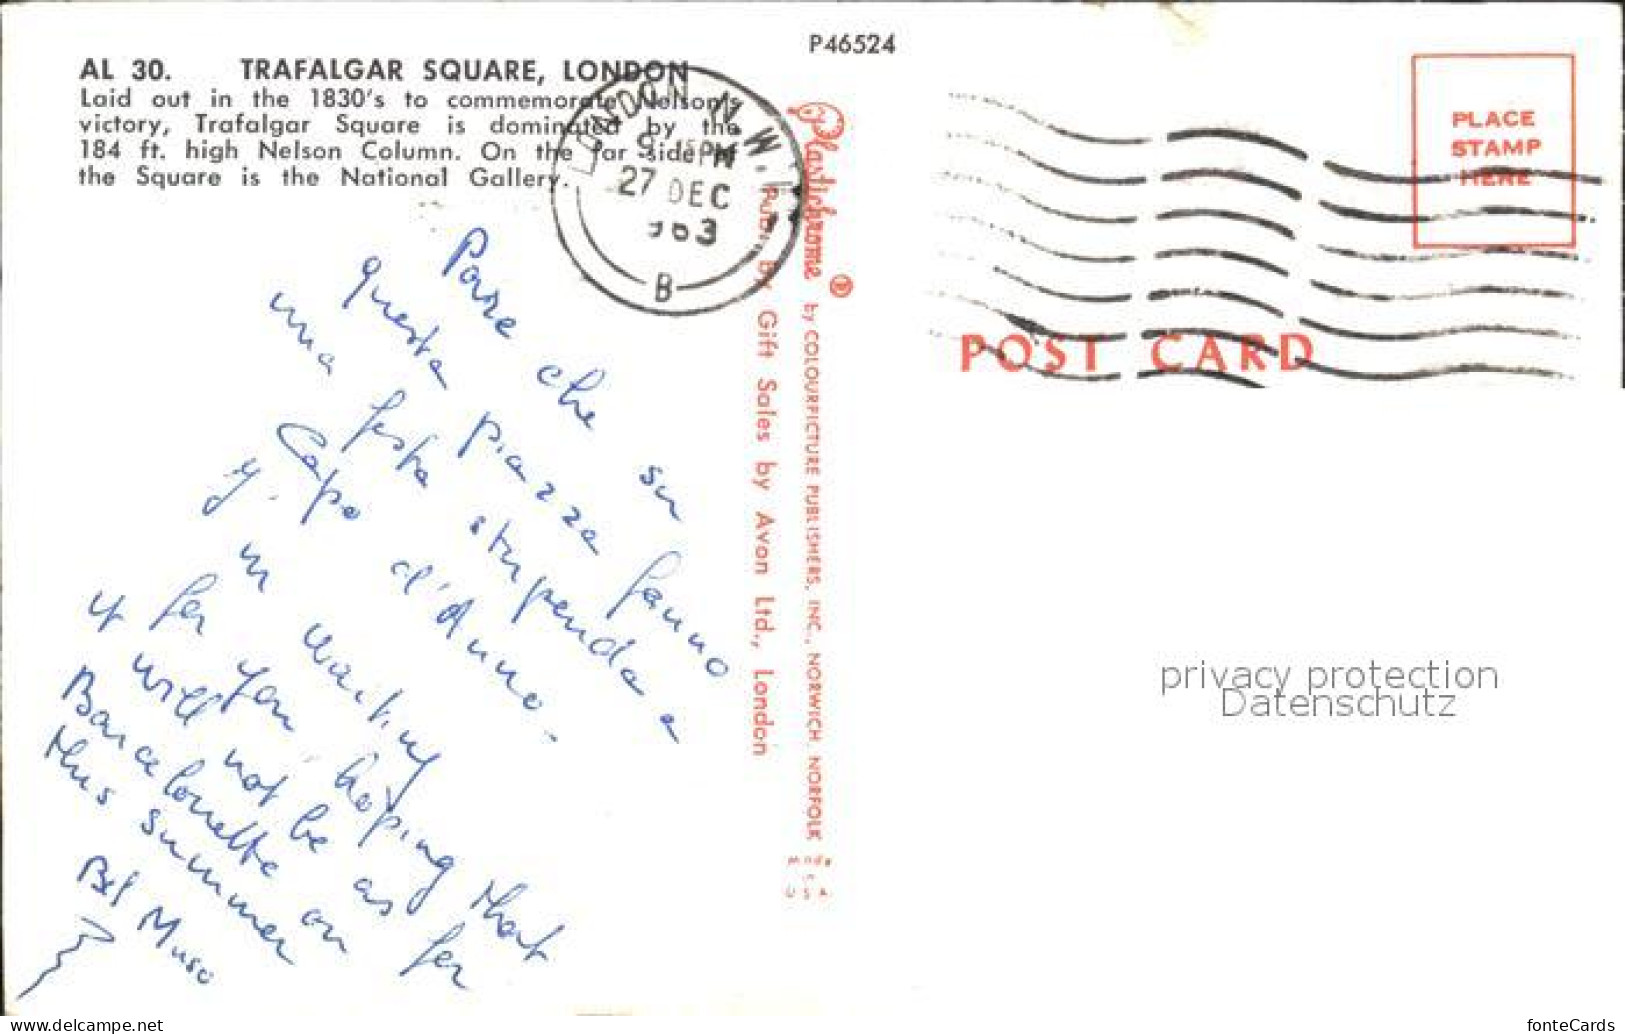 P46524
AL 30. TRAFALGAR SQUARE, LONDON
Laid out in the 1830's to commemorate Nelson's
victory, Trafalgar Square is dominated by the
184 ft. high Nelson Column. On the far side of
the Square is the National Gallery.
LONDON N.W.1
27 DEC
B
Pare che su
questa piazza fanno
una festa stupenda a
Capo d'Anno.
y.
m waiting
for you, hoping that
it will not be as far
Barcelonette on
this summer
Bel Muso
Plastichrome ® by COLOURPICTURE PUBLISHERS, INC., NORWICH, NORFOLK
Made
in
U S A
Publ. By Gift Sales by Avon Ltd., London
PLACE
STAMP
HERE
POST CARD
privacy protection
Datenschutz
https://www.delcampe.net
fonteCards